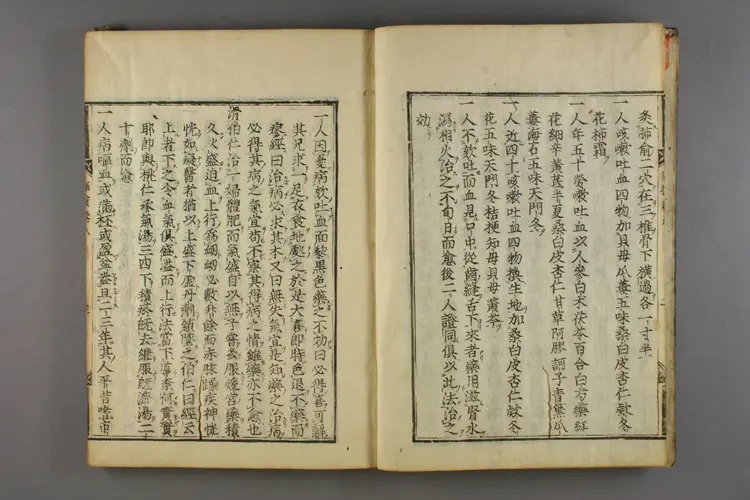 灸肺俞二穴在三椎骨下橫過各一寸半
一人咳嗽吐血四物加貝母瓜蔞五味桑白皮杏仁款冬
花柿霜
一人年五十勞嗽吐血以人參白朮茯苓百合白芍藥紅
花細辛黃芪半夏桑白皮杏仁甘草阿膠訶子青黛瓜
蔞海石五味天門冬
一人近四十咳嗽吐血四物換生地加桑白皮杏仁款冬
花五味天門冬桔梗知母貝母黃芩
一人不欬吐而血見口中從齒縫舌下來者藥用滋腎水
瀉相火治之不旬日而愈後二人證同俱以此法治之
効
一人因憂病欬吐血面黎黑色藥之不効曰必得喜可解
其兄求一足衣食地處之於是大喜即時色退不藥而
瘳經曰治病必求其本又曰無失氣宜是知藥之治病
必得其病之氣宜苟不察其得病之情雖藥亦不愈也
滑伯仁治一婦體肥而氣盛自以無子嘗多服煖宮藥積
久火盛迫血上行為衄衄必數升餘而赤脉躁疾神恍
恍如癡醫者猶以上盛下虛丹劑鎮墜之伯仁曰經云
上者下之今血氣俱盛溢而上行法當下導奈何實實
耶即與桃仁承氣湯三四下積瘀既去繼服既濟湯二
十劑而愈
一人病嘔血或滿杯或盈盆盎且二三年其人平昔嗜市